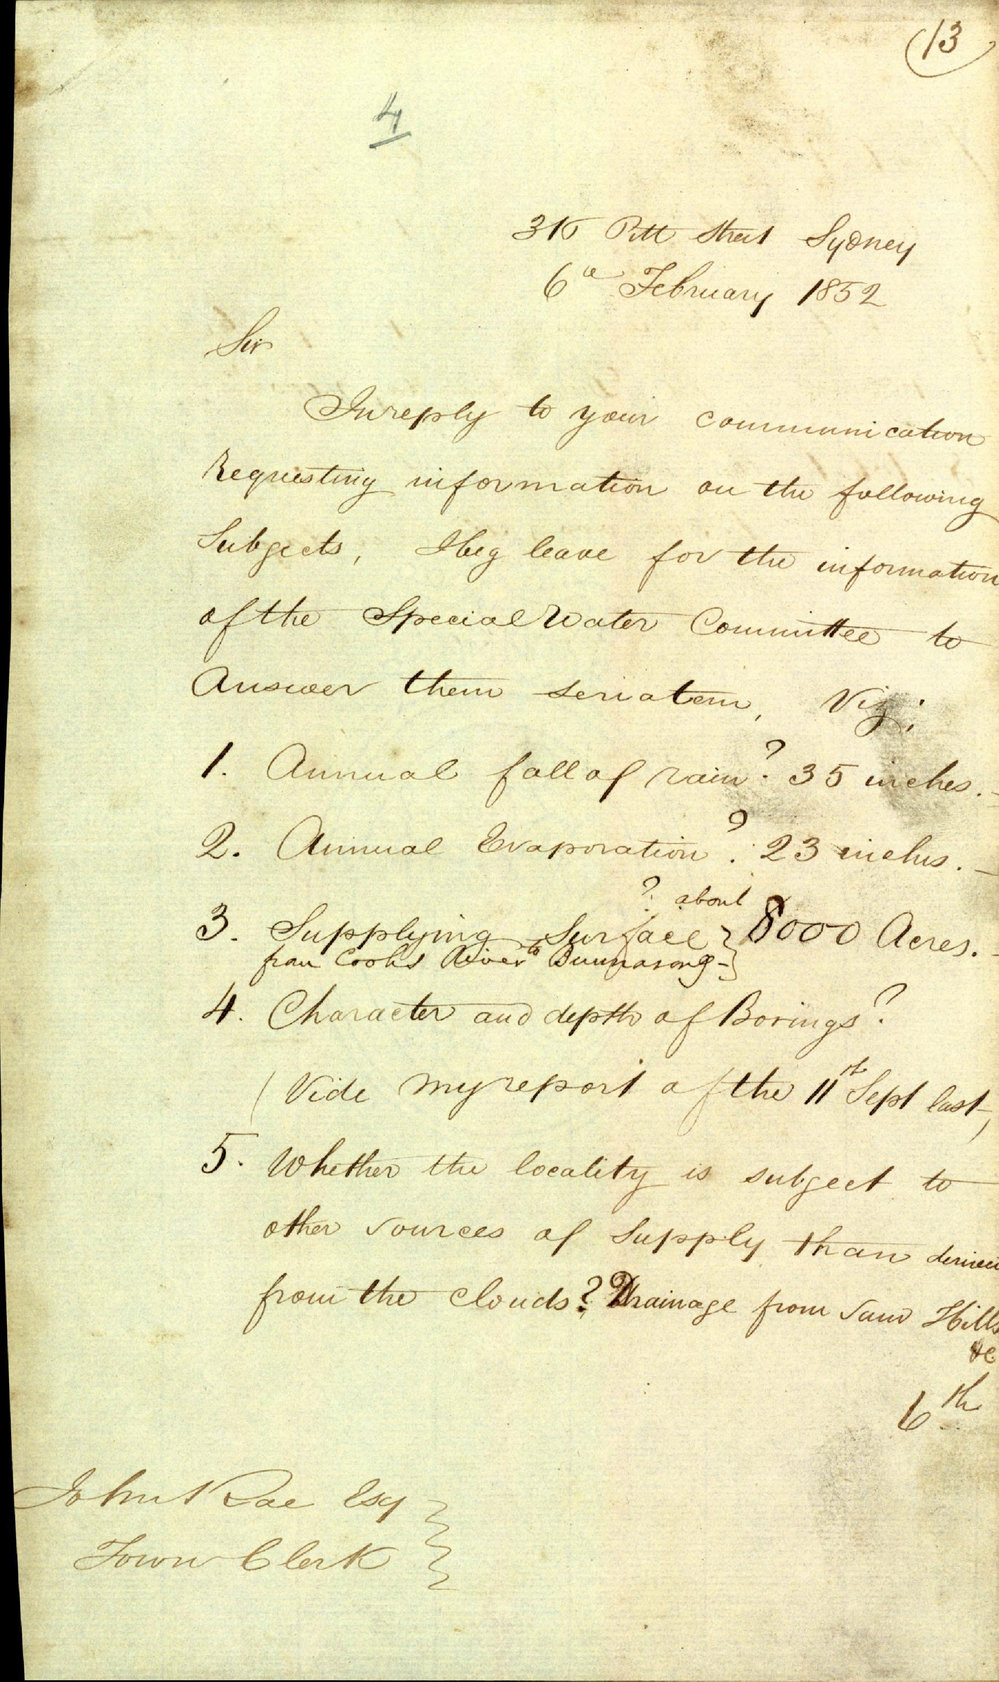 13
4
316 Pitt Street Sydney
6th February 1852
Sir
In reply to your communication
Requesting information on the following
Subjects, I beg leave for the information
of the Special Water Committee to
Answer them seriatem, Viz;
1. Annual fall of rain? 35 inches.
2. Annual Evaporation? 23 inches.
3. Supplying Surface? about 8000 Acres.
from Cooks River to
4. Character and depth of Borings?
(Vide my report of the 11th Sept last)
5. Whether the locality is subject to
other sources of Supply than
from the clouds? Drainage from Sand Hills
&c
6th
John Rae Esq
Town Clerk